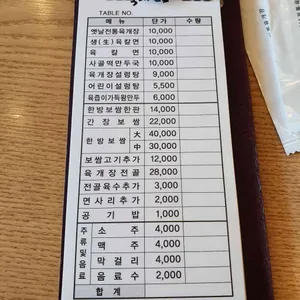 TABLE NO.
메뉴 단가 수량
옛날전통육개장 10,000
생(生)육칼면 10,000
육칼면 10,000
사골떡만두국 10,000
육개장설렁탕 9,000
어린이설렁탕 5,500
육즙이가득왕만두 6,000
한방보쌈한판 14,000
간장보쌈 22,000
한방보쌈 大 40,000
中 30,000
보쌈고기추가 12,000
육개장전골 28,000
전골육수추가 3,000
면사리추가 2,000
공기밥 1,000
주류및음료 소주 4,000
맥주 4,000
막걸리 4,000
음료수 2,000
합계